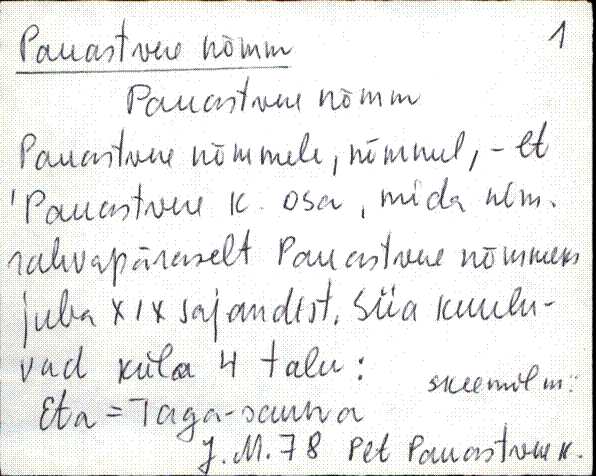 Pauastvere nõmm 1
Pauastvere nõmm
Pauastvere nõmmele, nõmmel, -et
'Pauastvere k. osa, mida nim.
rahvapäraselt Pauastvere nõmmeks
juba XIX sajandist. Siia kuulu-
vad küla 4 talu:
skeemil nr:
Eta = Taga-sauna
J.M. 78 Pet Pauastvere k.